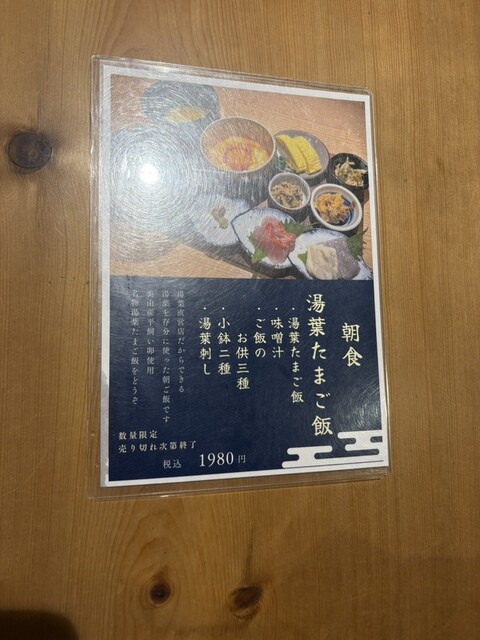 朝食
湯葉たまご飯
・湯葉たまご飯
・味噌汁
・ご飯の
お供三種
・小鉢二種
・湯葉刺し
湯葉直営店だからできる
湯葉を存分に使った朝ご飯です
美山産平飼い卵使用
名物湯葉たまご飯をどうぞ
数量限定
売り切れ次第終了
税込 1980円